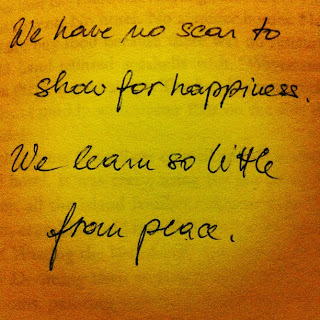 We have no scar to
show for happiness.
We learn so little
from peace.